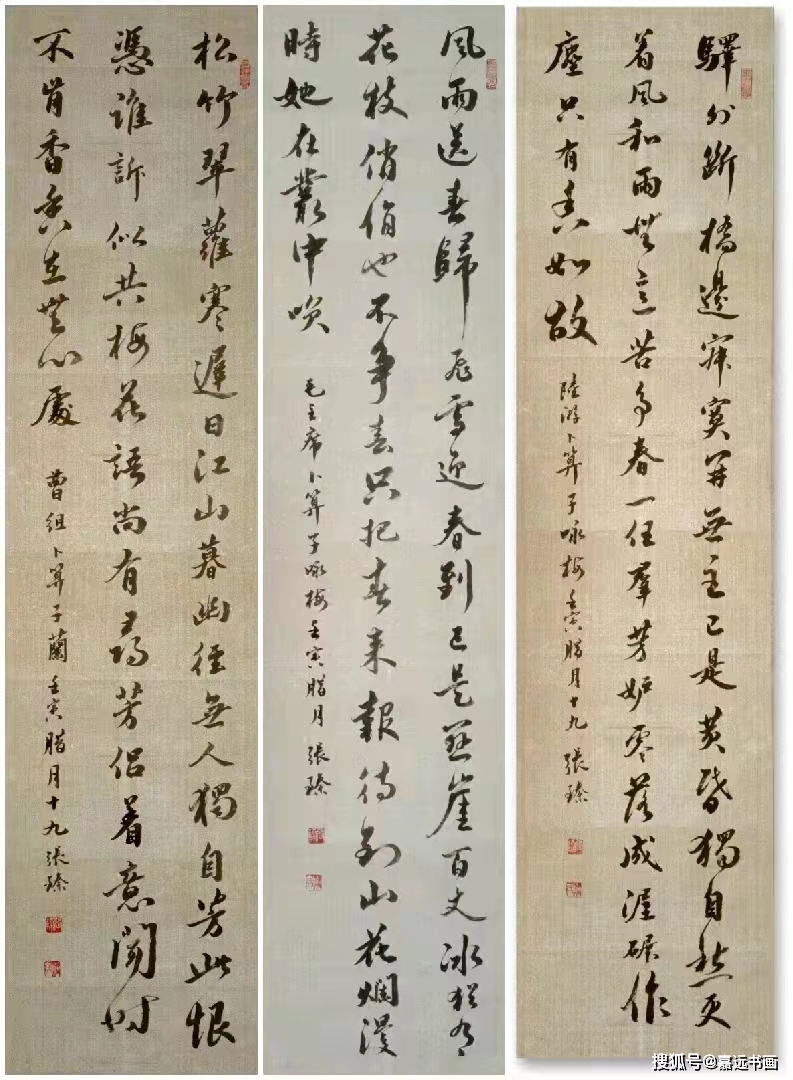 驛外斷橋邊寂寞開無主已是黃昏獨自愁更
着風和雨無意苦爭春一任羣芳妒零落成泥碾作
塵只有香如故
陸游卜算子咏梅壬寅腊月十九 張臻
風雨送春歸飛雪迎春到已是懸崖百丈冰猶有
花枝俏俏也不争春只把春来報待到山花爛漫
時她在叢中咲
毛主席卜算子咏梅壬寅腊月 張臻
松竹翠蘿寒遲日江山暮幽徑無人獨自芳此恨
憑誰訴似共梅花語尚有尋芳侣着意聞時
不肯香香在無心處
曹组卜算子蘭壬寅腊月十九張臻
搜狐号@嘉远书画